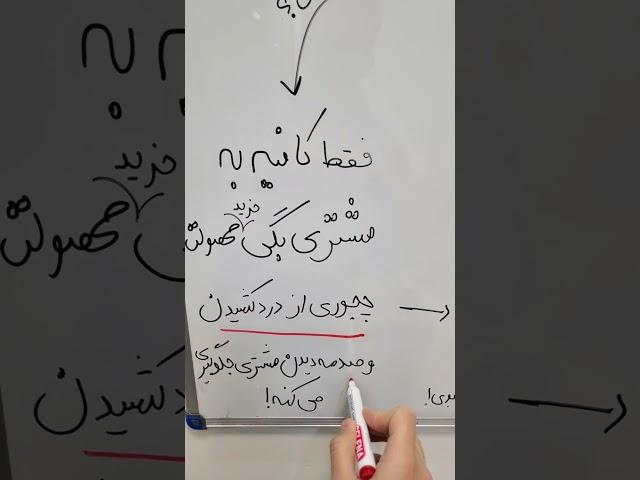 فقط کافیه به
خرید
مشتری بگی محصولت
چجوری از درد کشیدن
و صدمه دیدن مشتری جلوگیری
می کنه!